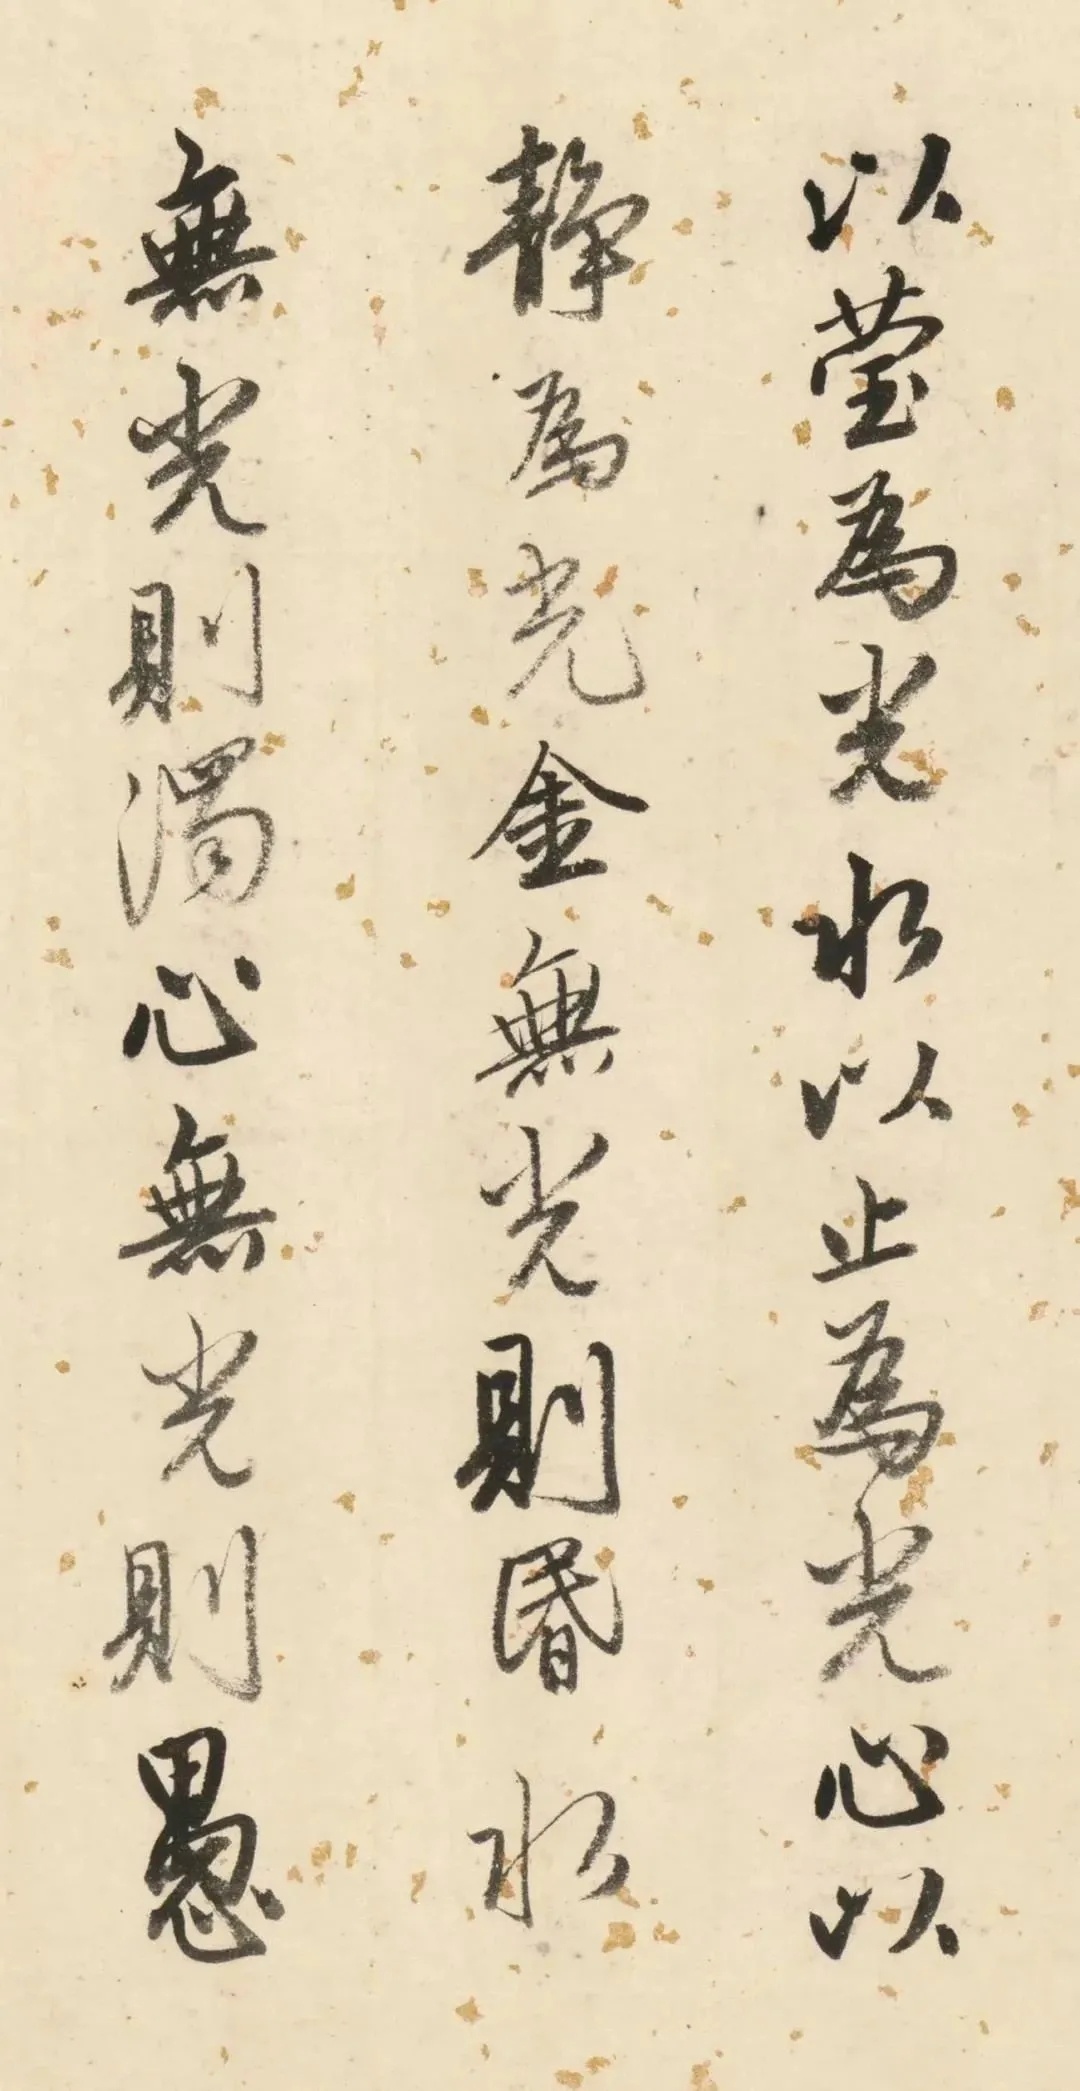 以莹為光水以止為光心以
静為光金無光則昬水
無光則濁心無光則愚